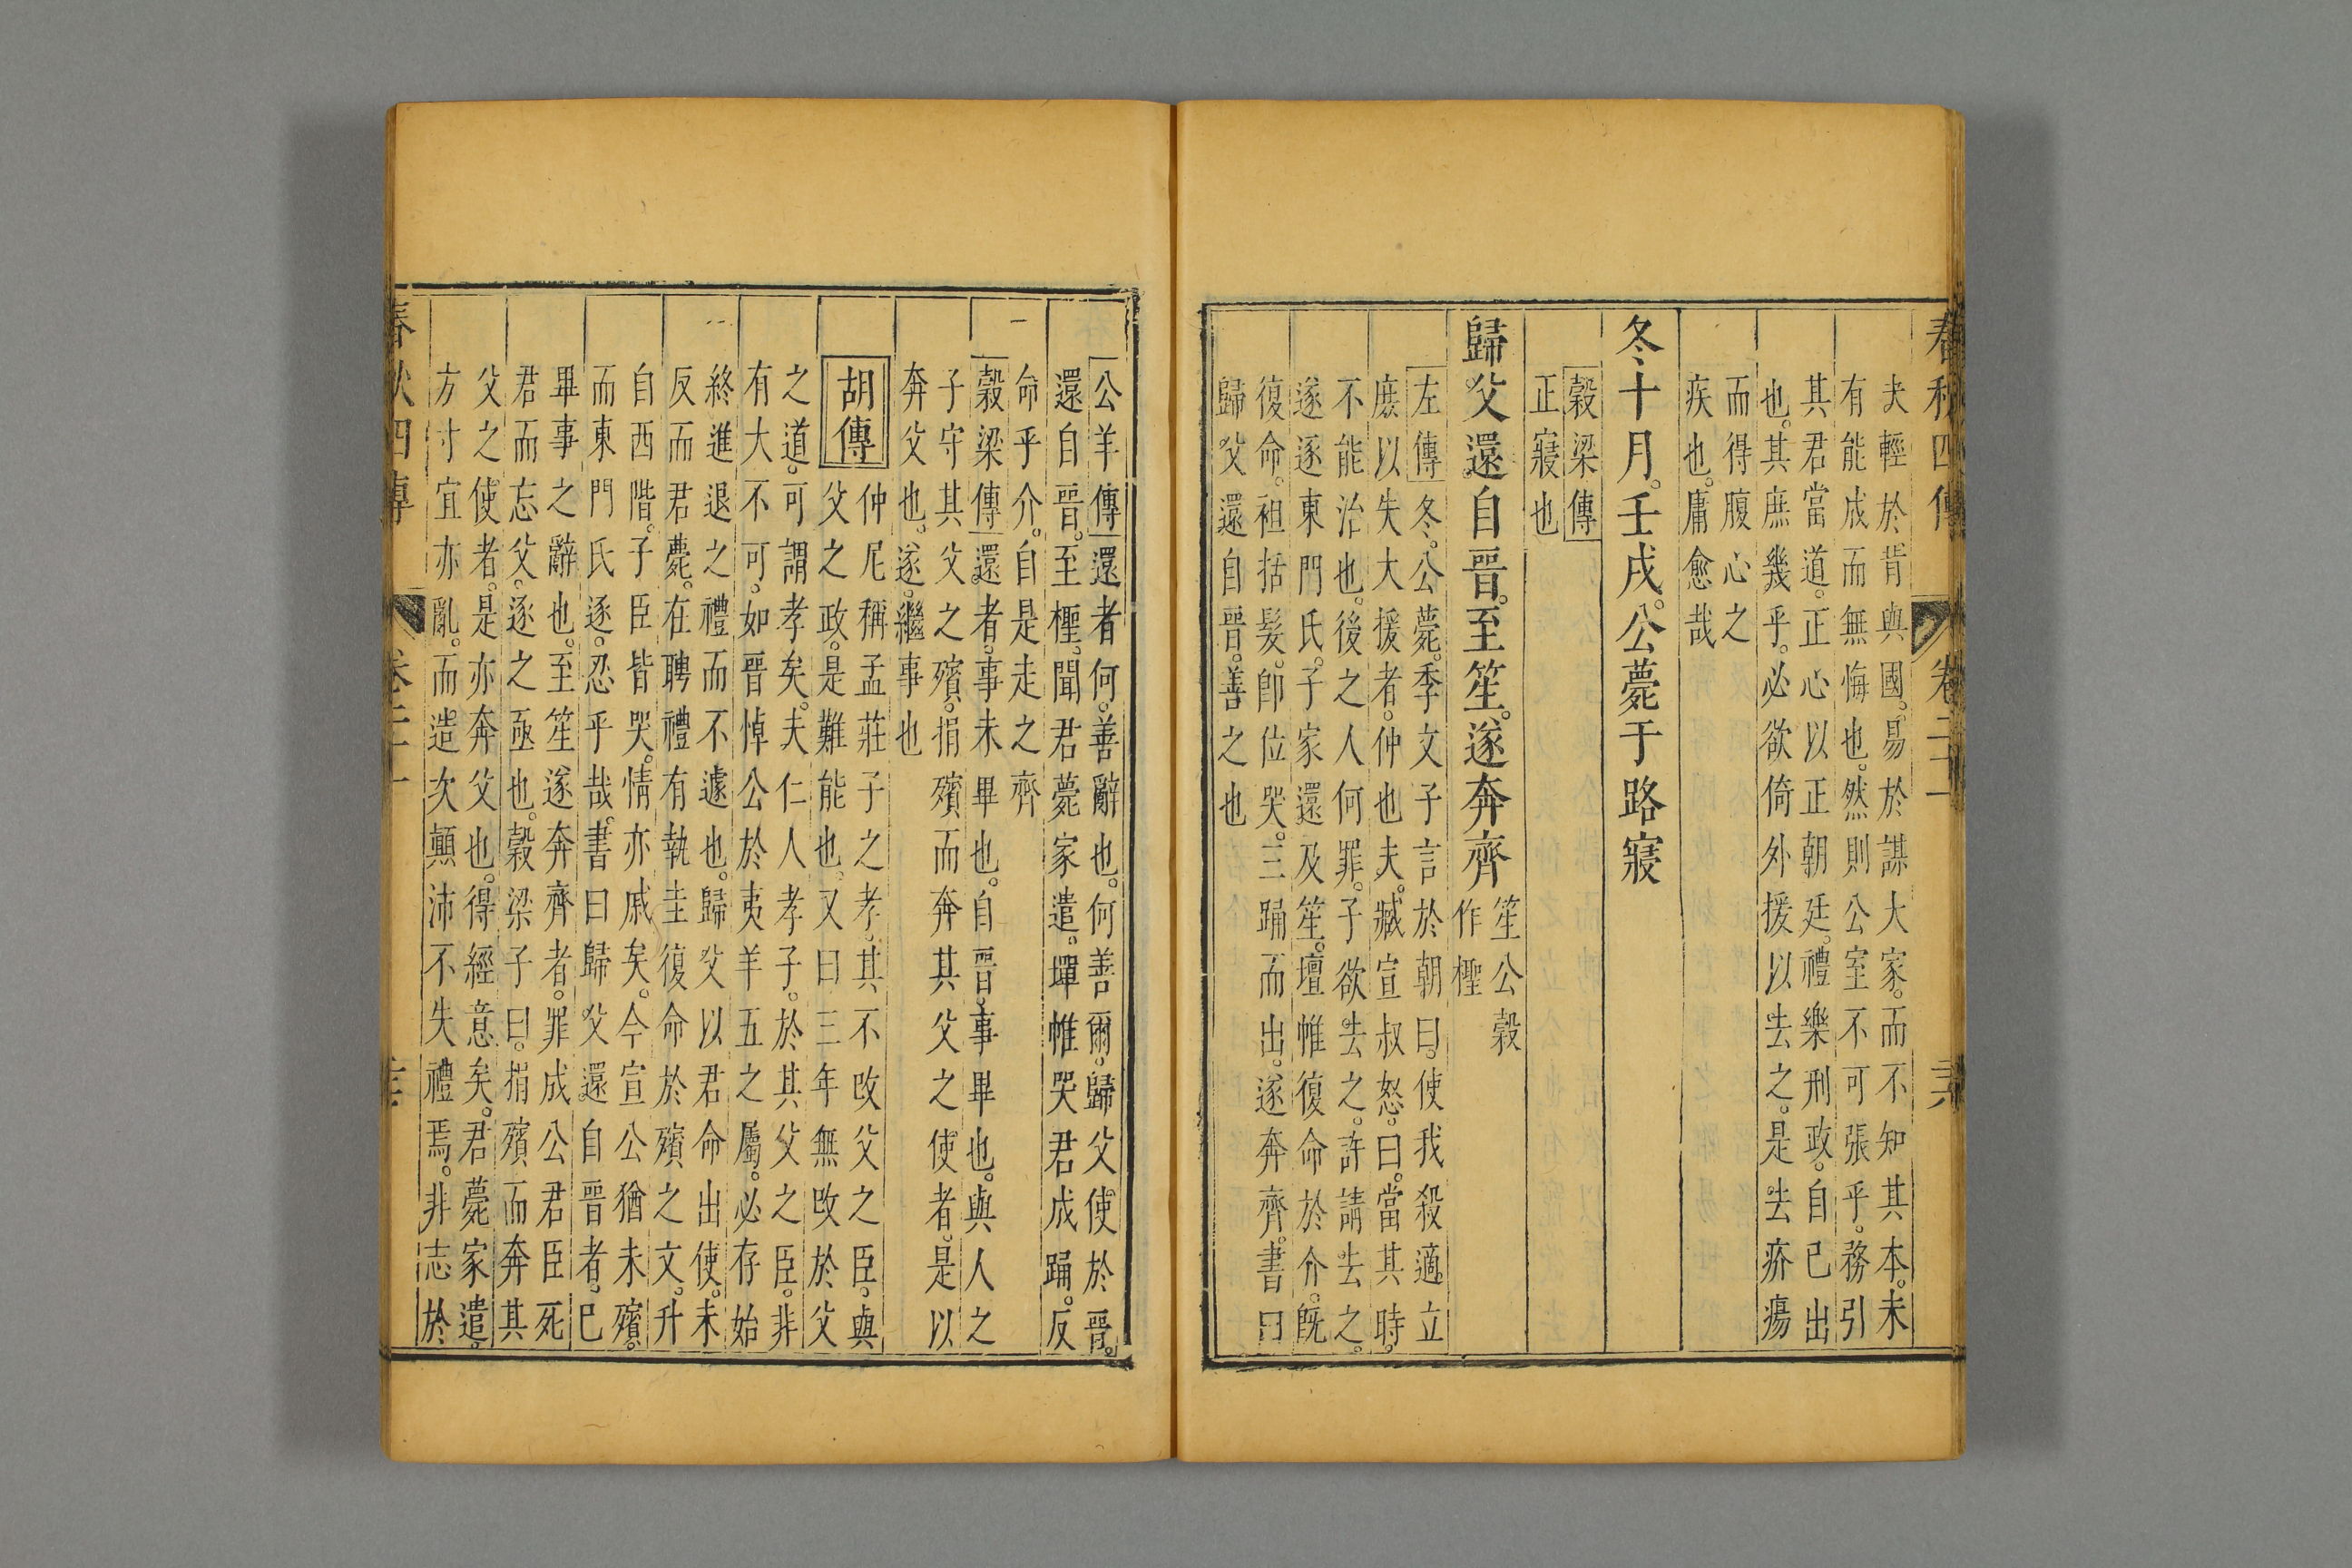 春秋四傳 卷二十一 三十八
夫輕於背與國。易於謀大家。而不知其本。未
有能成而無悔也。然則公室不可張乎。務引
其君當道。正心以正朝廷。禮樂刑政。自己出
也。其庶幾乎。必欲倚外援以去之。是去疥瘍
而得腹心之
疾也。庸愈哉
冬十月。壬戌。公薨于路寢
穀梁傳
正寢也
歸父還自晉。至笙。遂奔齊
笙公穀
作檉
左傳冬。公薨。季文子言於朝曰。使我殺適立
庶以失大援者。仲也夫。臧宣叔怒。曰。當其時。
不能治也。後之人何罪。子欲去之。許請去之。
遂逐東門氏。子家還及笙。壇帷復命於介。既
復命。袒括髮。即位哭。三踊而出。遂奔齊。書曰
歸父還自晉。善之也
公羊傳還者何。善辭也。何善爾。歸父使於晉。
還自晉。至檉。聞君薨家遣。墠帷哭君成踊。反
命乎介。自是走之齊
穀梁傳還者。事未畢也。自晉。事畢也。與人之
子守其父之殯。捐殯而奔其父之使者。是以
奔父也。遂。繼事也
胡傳
仲尼稱孟莊子之孝。其不改父之臣。與
父之政。是難能也。又曰三年無改於父
之道。可謂孝矣。夫仁人孝子。於其父之臣。非
有大不可。如晉悼公於夷羊五之屬。必存始
終進退之禮而不遽也。歸父以君命出使。未
反而君薨。在聘禮有執圭復命於殯之文。升
自西階。子臣皆哭。情亦戚矣。今宣公猶未殯。
而東門氏逐。忍乎哉。書曰歸父還自晉者。已
畢事之辭也。至笙遂奔齊者。罪成公君臣死
君而忘父。逐之亟也。穀梁子曰。捐殯而奔其
父之使者。是亦奔父也。得經意矣。君薨家遣。
方寸宜亦亂。而造次顛沛不失禮焉。非志於
春秋四傳